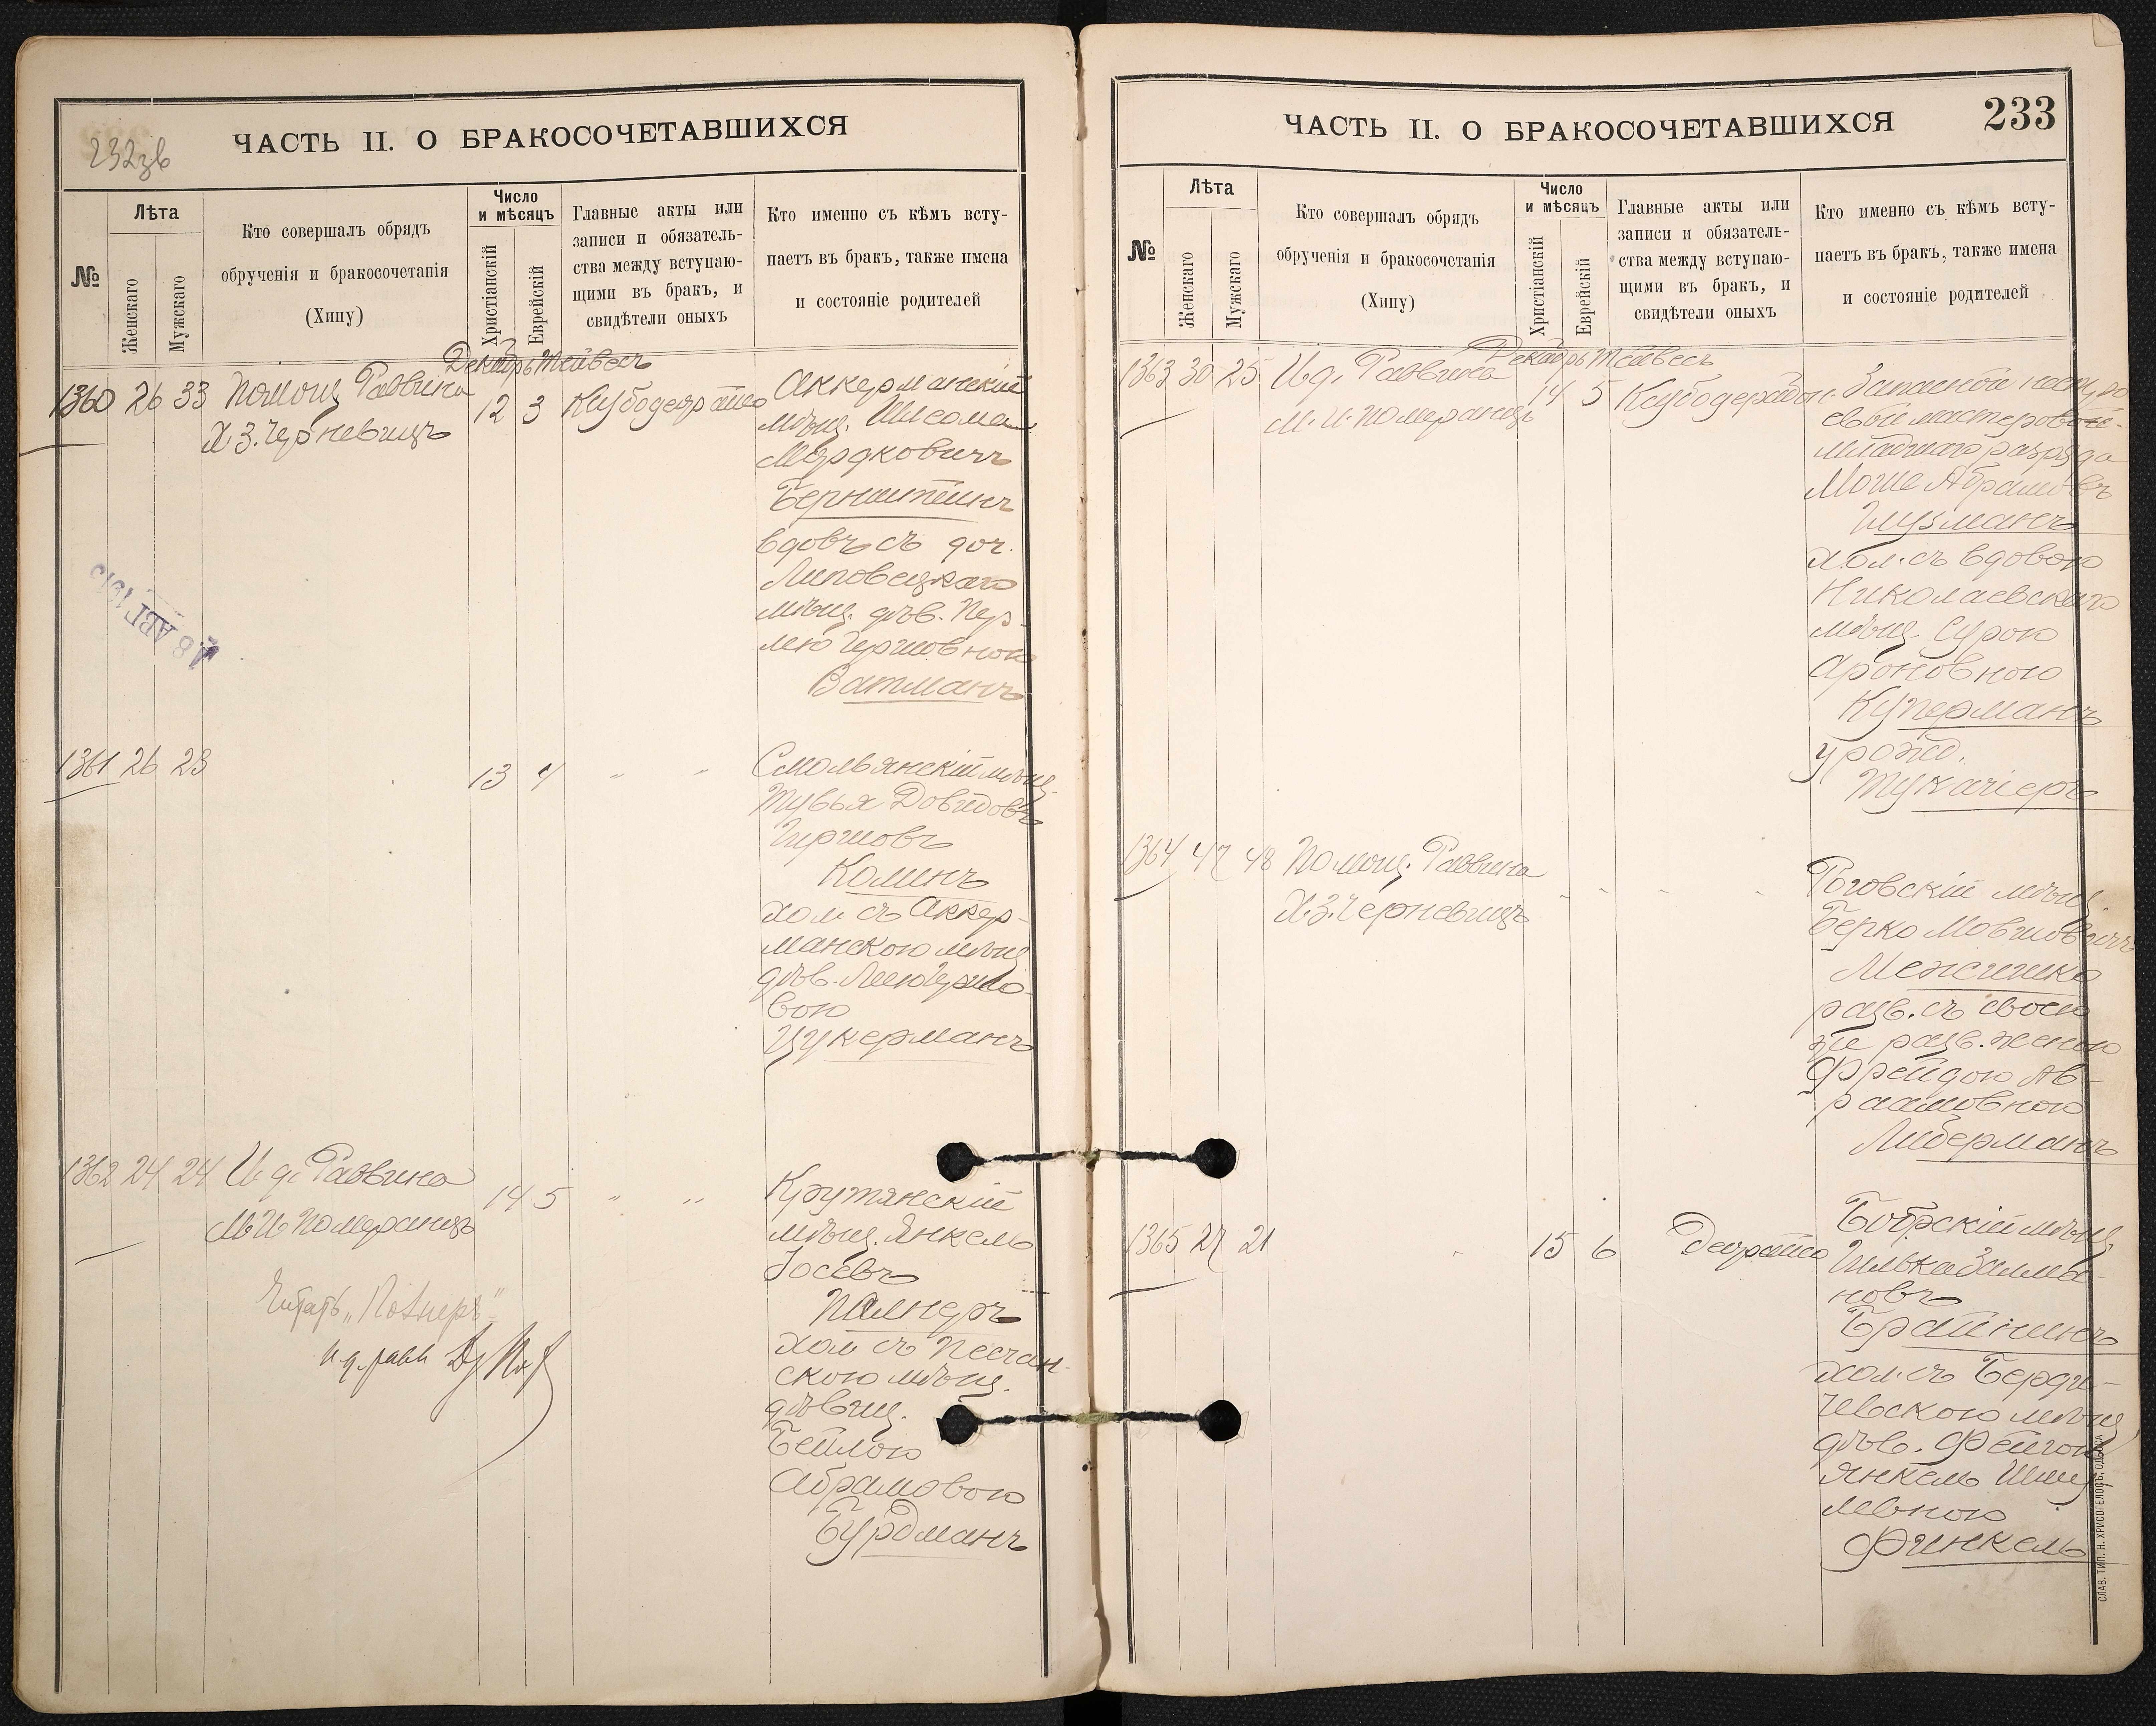 232зв
ЧАСТЬ II. О БРАКОСОЧЕТАВШИХСЯ
№
Лѣта
Женскаго
Мужскаго
Кто совершалъ обрядъ
обрученія и бракосочетанія
(Хипу)
Число
и мѣсяцъ
Христіанскій
Еврейскій
Главные акты или
записи и обязатель-
ства между вступаю-
щими въ бракъ, и
свидѣтели оныхъ
Кто именно съ кѣмъ всту-
паетъ въ бракъ, также имена
и состояніе родителей
Декабрь Тейвесъ
1360 26 33 Помощ. Раввина
Х.З. Черневицъ
12 3
Аккерманскій
мѣщ. Шлеома
Мордковичъ
Бернштейнъ
вдовъ съ доч.
Липовецкаго
мѣщ. дѣв. Пер-
лею Гершовною
Ватманъ
18 АВГ 191
1361 26 23
13 4 " "
Смольянскій мѣщ.
Тувья Довидовъ
Гиршовъ
Колинъ
хол. съ Аккер-
манскою мѣщ
дѣв. Леею Гершо-
вою
Цукерманъ
1362 24 24 И. д. Раввина
М. И. Померанцъ
14 5 " "
Крутянскій
мѣщ. Янкель
Іосевъ
Полнеръ
хол съ Песчан-
скою мѣщ.
дѣвиц.
Бейлою
Абрамовою
Бурдманъ
Читать „
и. д. равв
ЧАСТЬ II. О БРАКОСОЧЕТАВШИХСЯ
233
№
Лѣта
Женскаго
Мужскаго
Кто совершалъ обрядъ
обрученія и бракосочетанія
(Хипу)
Число
и мѣсяцъ
Христіанскій
Еврейскій
Главные акты или
записи и обязатель-
ства между вступаю-
щими въ бракъ, и
свидѣтели оныхъ
Кто именно съ кѣмъ всту-
паетъ въ бракъ, также имена
и состояніе родителей
Декабрь Тейвесъ
1363 30 25 И. д. Раввина
М. И. Померанцъ
14 5
Запасной
мастеровой
младшаго разряда
Моше Абрамовъ
Гузманъ
хол. съ вдовою
Николаевскаго
мѣщ. Сурою
Ароновною
Куперманъ
урожд.
Тукачіеръ
1364 47 48 Помощ. Раввина
Х.З. Черневицъ
" " " "
Роговскій мѣщ.
Берко Мовшовичъ
разв. съ своею
же разв. женою
Фрейдою Ав-
раамовною
Либерманъ
1365 27 21 "
15 6
Бобрскій мѣщ
Залма-
новъ
Брайнинъ
хол. съ Берди-
чевскою мѣщ
дѣв. Фейгою
Янкель Шму-
левною
Финкель
СЛАВ. ТИП. Н. ХРИСОГЕЛОСЪ, ОДЕССА